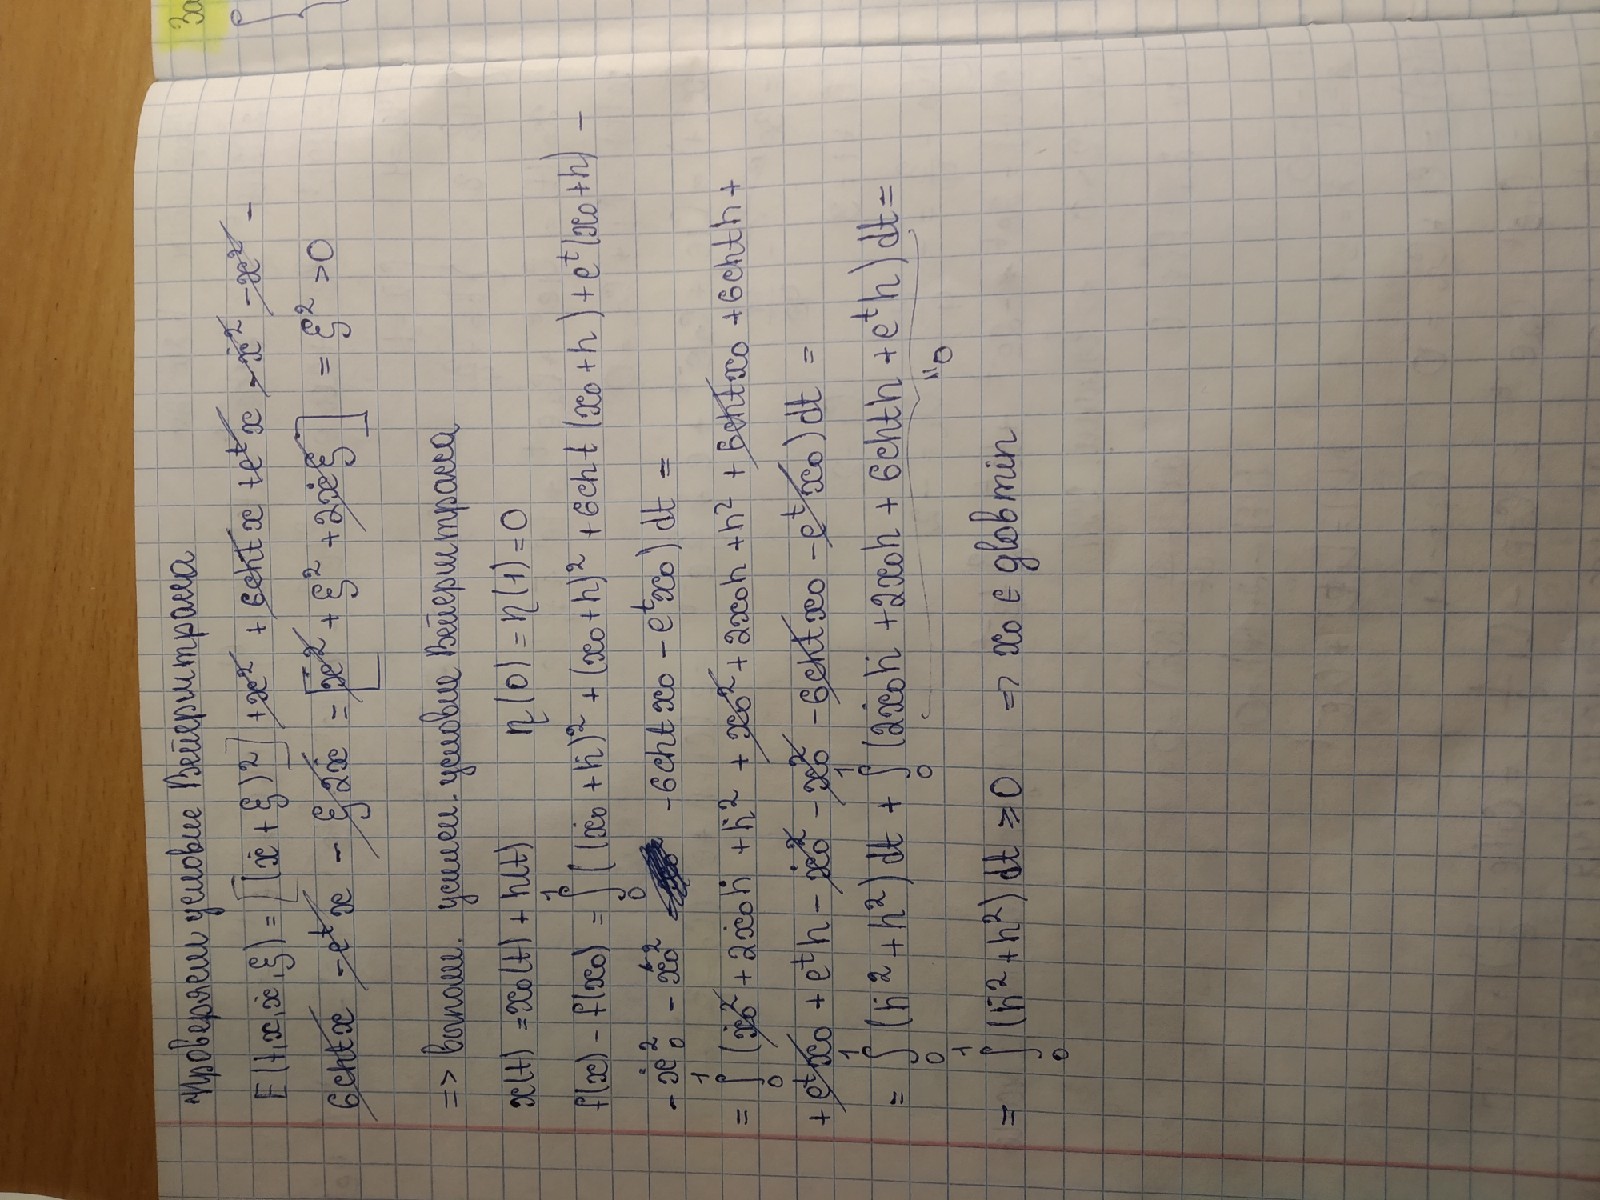 Проверяем условие Вейерштрасса
E(t,x,ẋ,ξ) = [(ẋ+ξ)²] + x² + 6cht x + eᵗx - ẋ² - x² -
6chtx - eᵗx - ξ2ẋ = [ẋ² + ξ² + 2ẋξ] = ξ² > 0
=> выполн. усилен. условие Вейерштрасса
x(t) = x₀(t) + h(t) η(0) = η(1) = 0
f(x) - f(x₀) = ∫₀¹ ((ẋ₀ + ḣ)² + (x₀+h)² + 6cht (x₀+h) + eᵗ(x₀+h) -
- ẋ₀² - x₀² - 6cht x₀ - eᵗx₀) dt =
= ∫₀¹ (ẋ₀² + 2ẋ₀ḣ + ḣ² + x₀² + 2x₀h + h² + 6chtx₀ + 6chth +
+ eᵗx₀ + eᵗh - ẋ₀² - x₀² - 6chtx₀ - eᵗx₀) dt =
= ∫₀¹ (ḣ² + h²) dt + ∫₀¹ (2ẋ₀ḣ + 2x₀h + 6chth + eᵗh) dt =
"0
= ∫₀¹ (ḣ² + h²) dt ≥ 0 => x₀ ∈ globmin
За